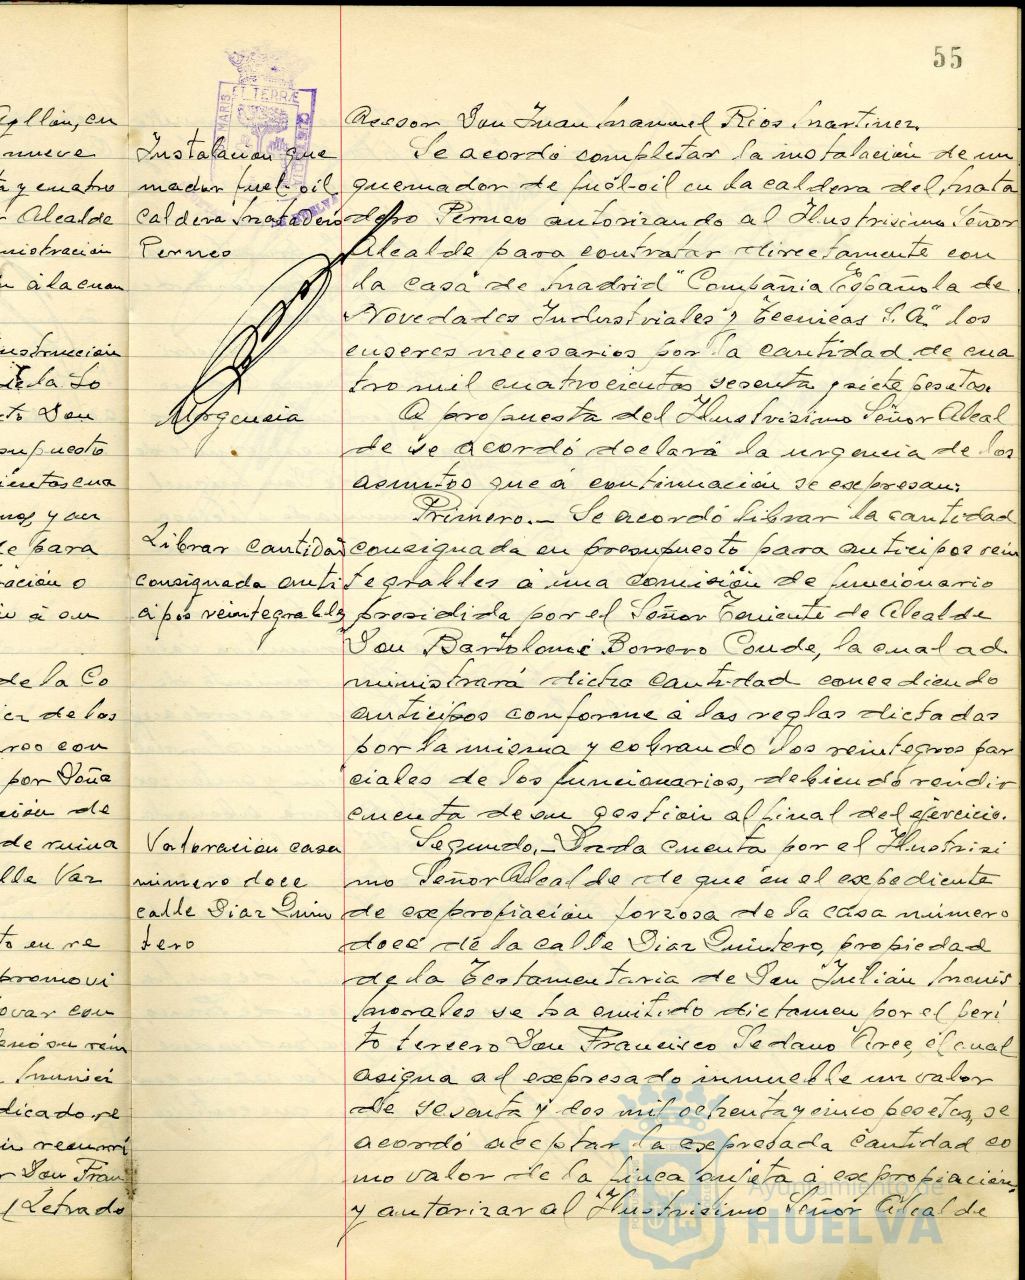 55
Ayllón, en
nueve
ta y cuatro
r Alcalde
nistración
n á la cuan
nstrucción
de la So
to Don
supuesto
cientas cua
nos, y au
de para
ración o
de la Co
cia de los
reo con
por Doña
ción de
de ruina
lle Vaz
to en re
promovi
ovar con
enó su rein
Munici
dicado re
in recurri
r Don Fran
l Letrado
MARIS
ET TERRÆ
CUSTODI
HUELVA
Instalación que
mador fuel-oil
caldera Matadero
Perneo
Urgencia
Librar cantidad
consignada anti
cipos reintegrables
Valoración casa
número doce
calle Diaz Quin
tero
Asesor Don Juan Manuel Rios Martinez.
Se acordó completar la instalación de un
quemador de fuél-oil en la caldera del Mata
dero Perneo autorizando al Ilustrisimo Señor
Alcalde para contratar directamente con
la casa de Madrid "Compañia Española de
Novedades Industriales y Tecnicas S.A." los
enseres necesarios por la cantidad de cua
tro mil cuatrocientas sesenta y siete pesetas.
A propuesta del Ilustrisimo Señor Alcal
de se acordó declará la urgencia de los
asuntos que á continuación se expresan:
Primero.- Se acordó librar la cantidad
consignada en presupuesto para anticipos rein
tegrables á una comisión de funcionario
presidida por el Señor Teniente de Alcalde
Don Bartolomé Borrero Conde, la cual ad
ministrará dicha cantidad concediendo
anticipos conforme á las reglas dictadas
por la misma y cobrando los reintegros par
ciales de los funcionarios, debiendo rendir
cuenta de su gestión al final del ejercicio.
Segundo.- Dada cuenta por el Ilustrisi
mo Señor Alcalde de que en el expediente
de expropiación forzosa de la casa número
doce de la calle Diaz Quintero, propiedad
de la Testamentaria de Don Julián Monis
Morales se ha emitido dictamen por el peri
to tercero Don Francisco Sedano Arce, el cual
asigna al expresado inmueble un valor
de sesenta y dos mil ochenta y cinco pesetas, se
acordó aceptar la expresada cantidad co
mo valor de la finca sujeta á expropiación
y autorizar al Ilustrisimo Señor Alcalde
Ayuntamiento de
HUELVA